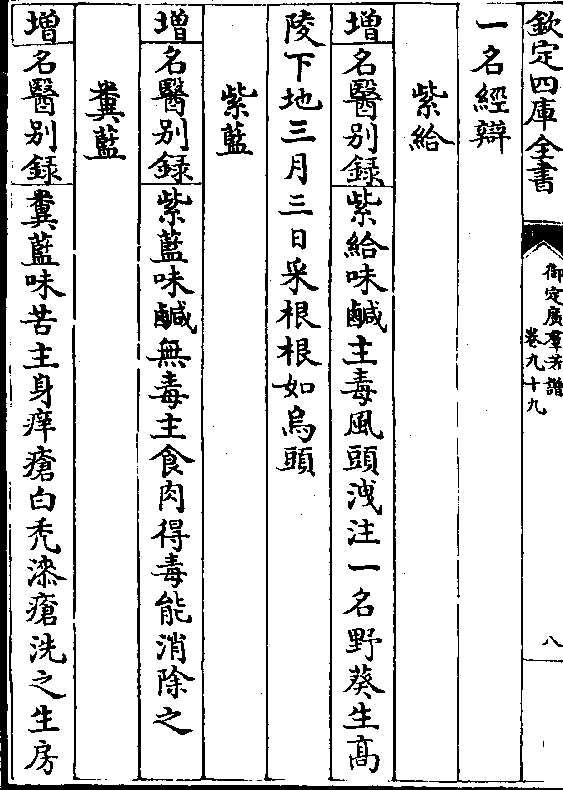 欽定四庫全書
御定廣羣芳譜
卷九十九
八
一名經辯
紫給
增名醫別録紫給味鹹主毒風頭洩注一名野葵生高
陵下地三月三日采根根如烏頭
紫藍
增名醫別録紫藍味鹹無毒主食肉得毒能消除之
糞藍
增名醫別録糞藍味苦主身痒瘡白禿漆瘡洗之生房